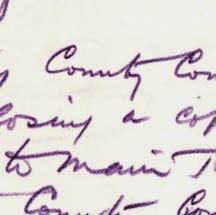 County Con
losing a cop
to main T
County Con